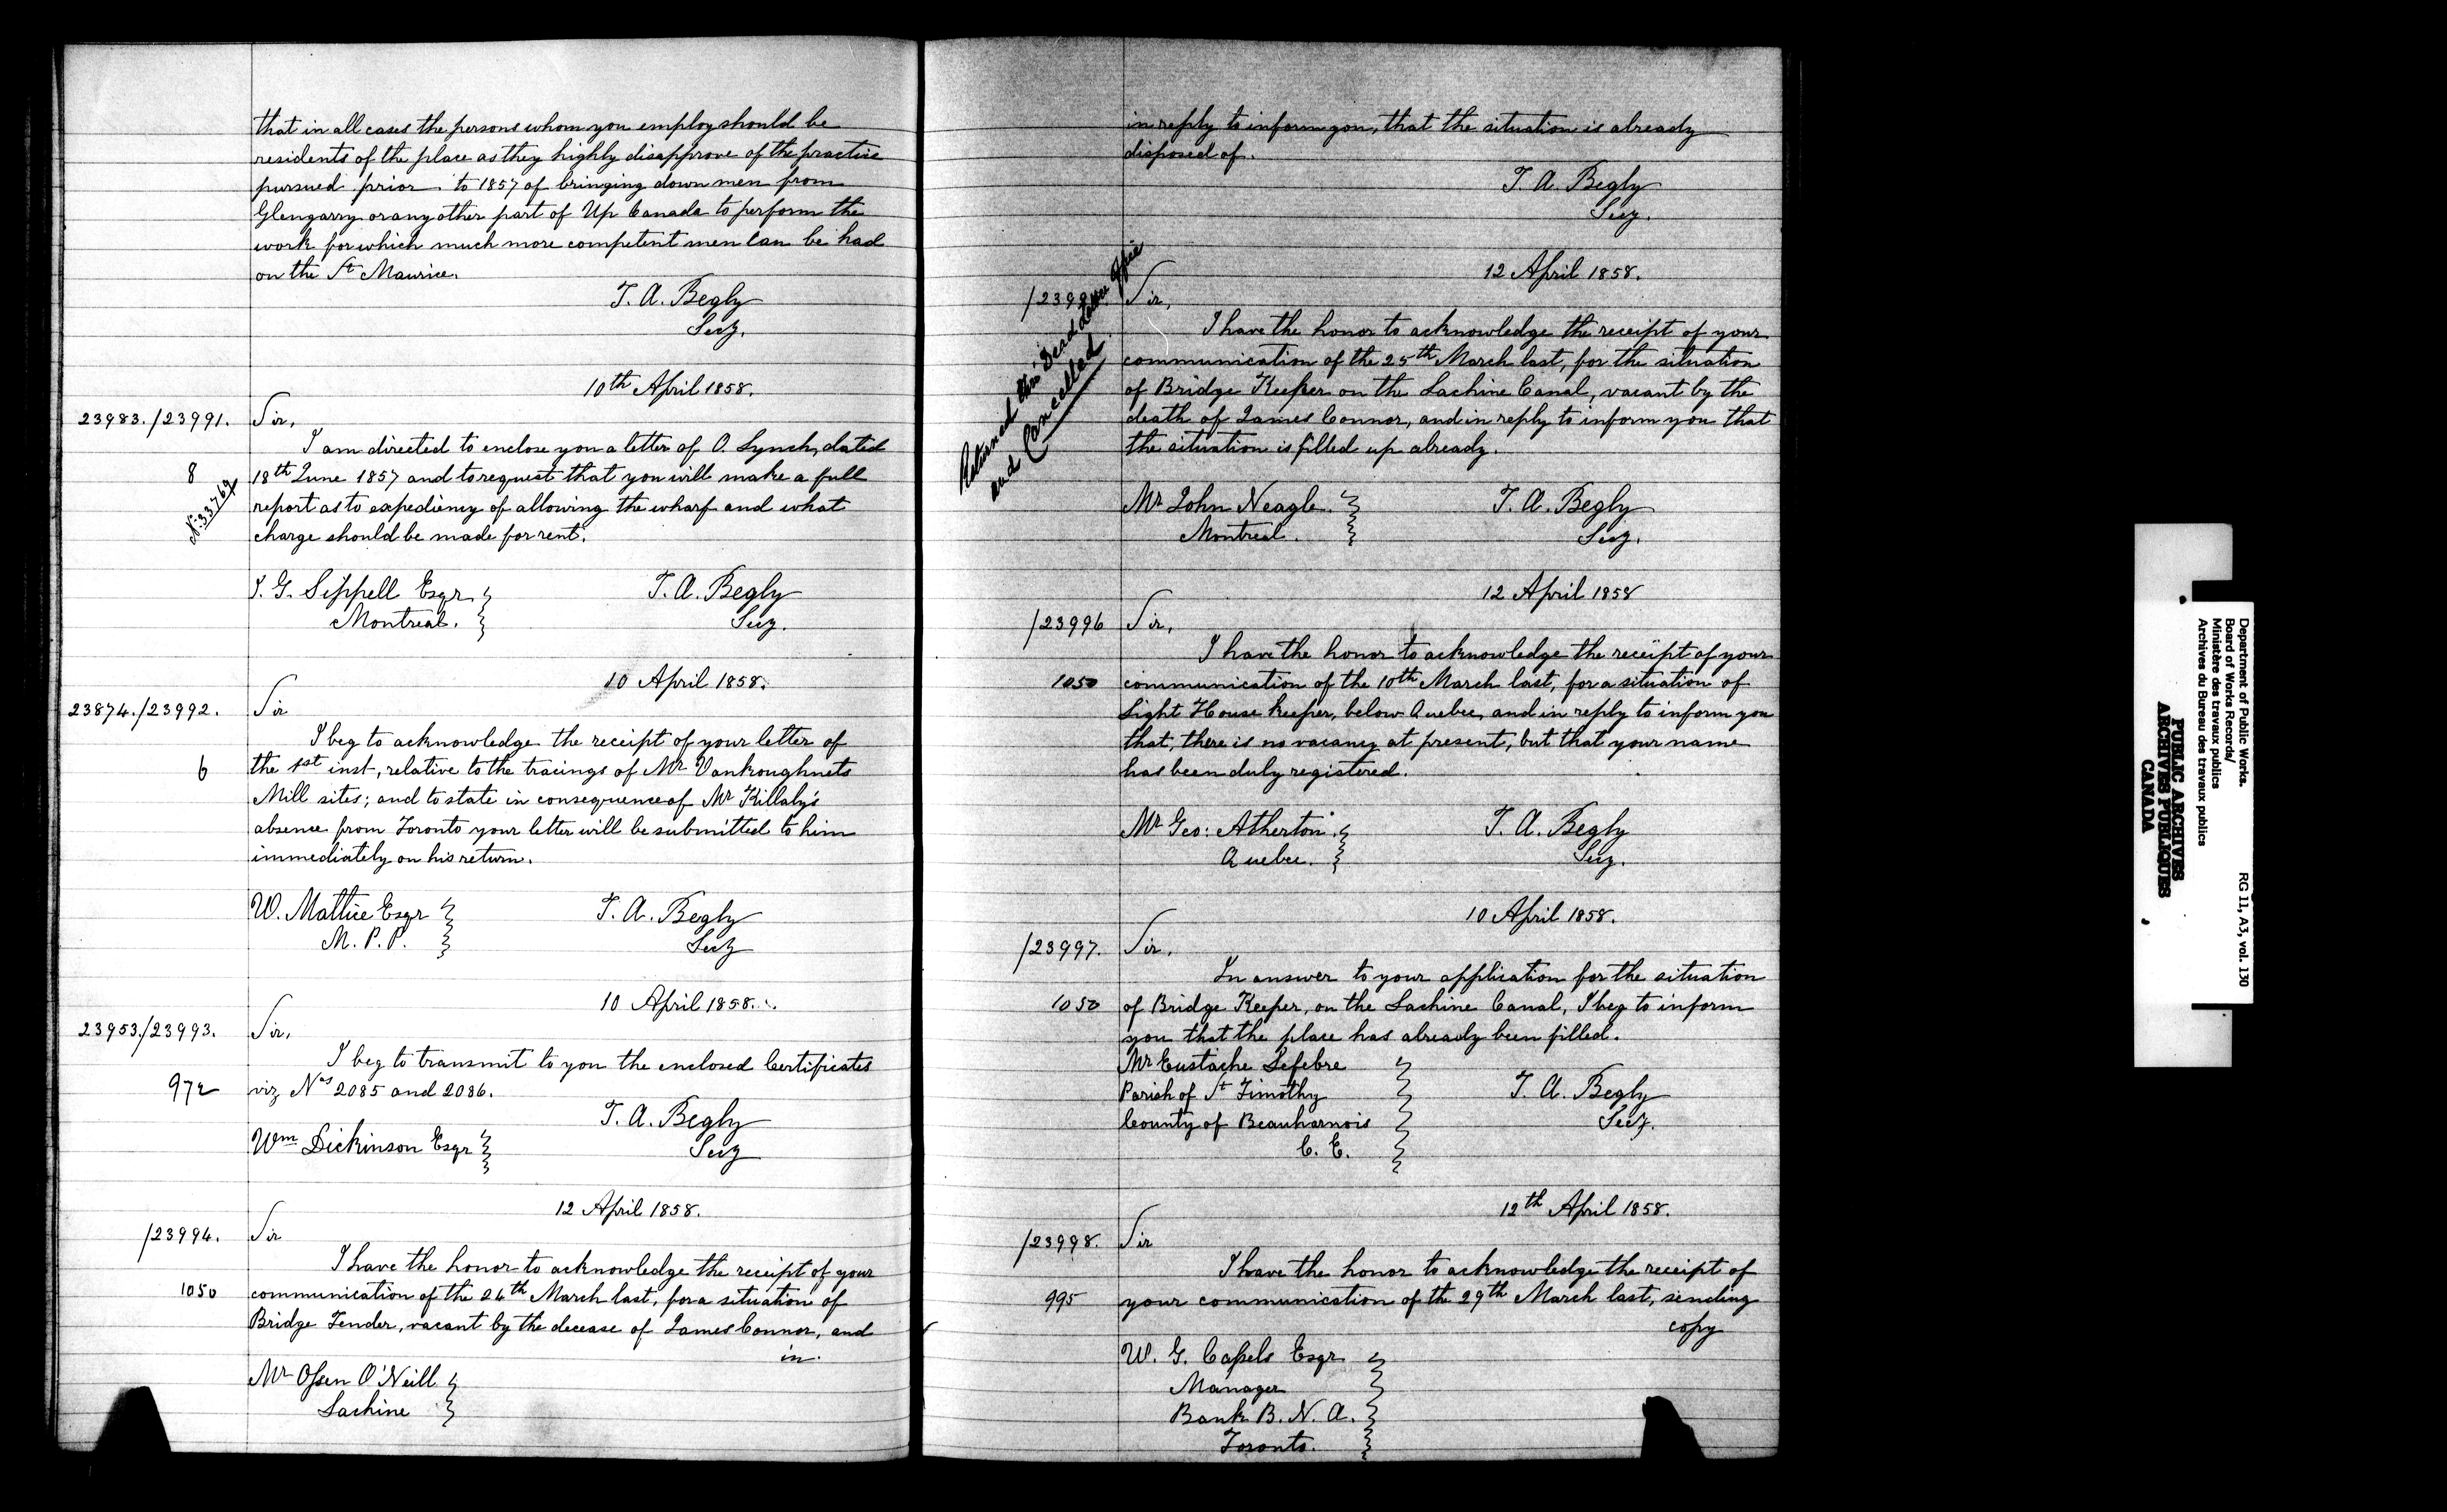 that in all cases the persons whom you employ should be
residents of the place as they highly disapprove of the practice
pursued prior to 1857 of bringing down men from
Glengarry or any other part of Up Canada to perform the
work for which much more competent men can be had
on the St Maurice.
T. A. Begly
Secy.
10th April 1858.
23983./23991. Sir,
I am directed to enclose you a letter of O. Lynch, dated
8 18th June 1857 and to request that you will make a full
No. 33769 report as to expediency of allowing the wharf and what
charge should be made for rent.
J. G. Sippell Esqr T. A. Begly
Montreal. Secy.
10 April 1858.
23874./23992. Sir
I beg to acknowledge the receipt of your letter of
6 the 1st inst, relative to the tracings of Mr Vankoughnets
Mill sites; and to state in consequence of Mr Killaly's
absence from Toronto your letter will be submitted to him
immediately on his return.
W. Mattice Esqr T. A. Begly
M. P. P. Secy
10 April 1858.
23953./23993. Sir,
I beg to transmit to you the enclosed Certificates
972 viz Nos 2085 and 2086.
T. A. Begly
Wm Dickinson Esqr Secy
12 April 1858.
/23994. Sir
I have the honor to acknowledge the receipt of your
1050 communication of the 24th March last, for a situation of
Bridge Tender, vacant by the decease of James Connor, and
in
Mr O'Neill
Lachine
in reply to inform you, that the situation is already
disposed of.
T. A. Begly
Secy.
12 April 1858.
Sir,
Returned thro' Dead Letter Office
and Cancelled
I have the honor to acknowledge the receipt of your
communication of the 25th March last, for the situation
of Bridge Keeper on the Lachine Canal, vacant by the
death of James Connor, and in reply to inform you that
the situation is filled up already.
Mr John Neagle T. A. Begly
Montreal. Secy.
12 April 1858
/23996 Sir,
I have the honor to acknowledge the receipt of your
1050 communication of the 10th March last, for a situation of
Light House keeper, below Quebec, and in reply to inform you
that, there is no vacancy at present, but that your name
has been duly registered.
Mr Geo: Atherton T. A. Begly
Quebec. Secy.
10 April 1858.
/23997. Sir,
In answer to your application for the situation
1050 of Bridge Keeper, on the Lachine Canal, I beg to inform
you that the place has already been filled.
Mr Eustache Lefebre
Parish of St Timothy T. A. Begly
County of Beauharnois Secy.
C. E.
12th April 1858.
/23998. Sir
I have the honor to acknowledge the receipt of
995 your communication of the 29th March last, sending
copy
W. G. Cassels Esqr
Manager
Bank B. N. A.
Toronto.
Department of Public Works. RG 11, A3, vol. 130
Board of Works Records/
Ministère des travaux publics
Archives du Bureau des travaux publics
PUBLIC ARCHIVES
ARCHIVES PUBLIQUES
CANADA